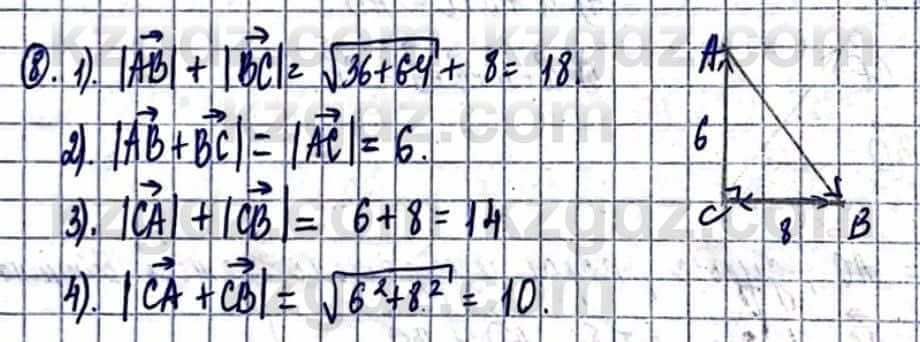 8. 1). |AB⃗| + |BC⃗| = √36+64 + 8 = 18.
2). |AB⃗ + BC⃗| = |AC⃗| = 6.
3). |CA⃗| + |CB⃗| = 6 + 8 = 14
4). |CA⃗ + CB⃗| = √6²+8² = 10.
A
6
C
8
B
kzgdz.com